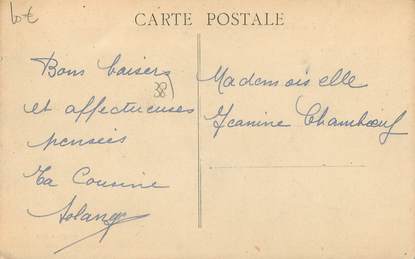 10€
CARTE POSTALE
Bons baisers
et affectueuses
pensées
Ta Cousine
Solange
38
Mademoiselle
Jeanine Chambœuf